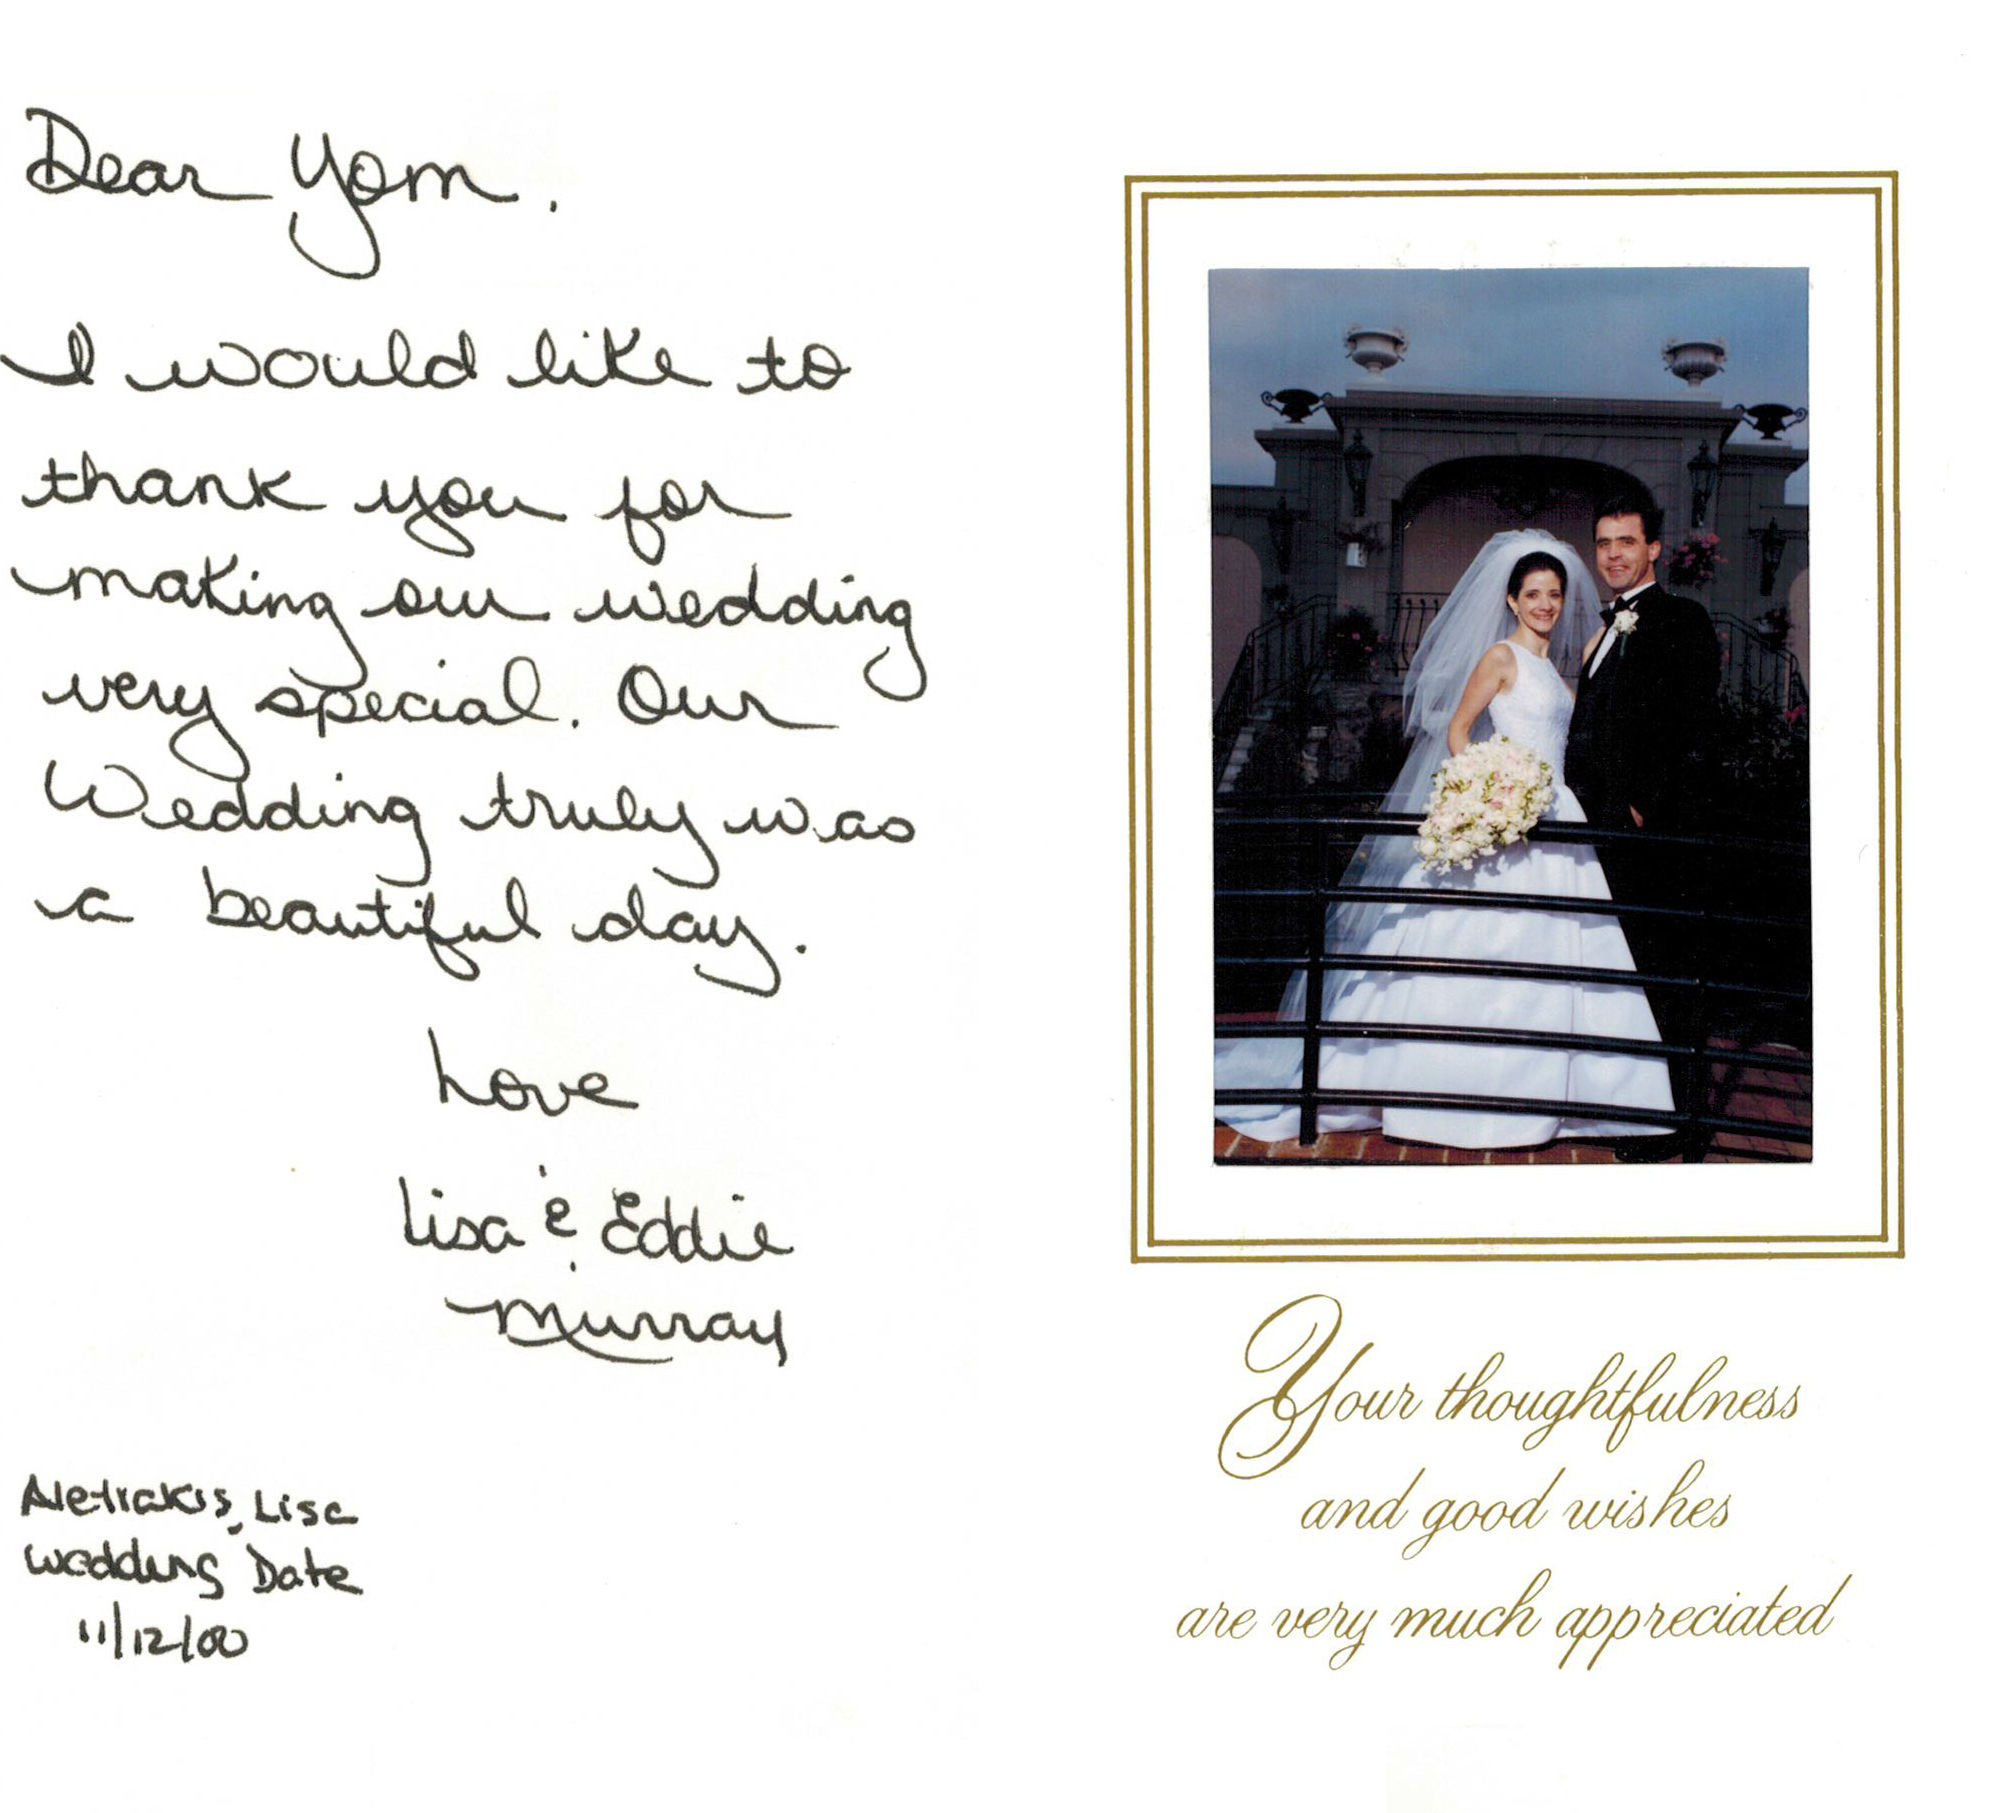 Dear Yom.
I would like to
thank you for
making our wedding
very special. Our
Wedding truly was
a beautiful day.
Love
Lisa & Eddie
Murray
Lisa
Wedding Date
11/12/00
Your thoughtfulness
and good wishes
are very much appreciated